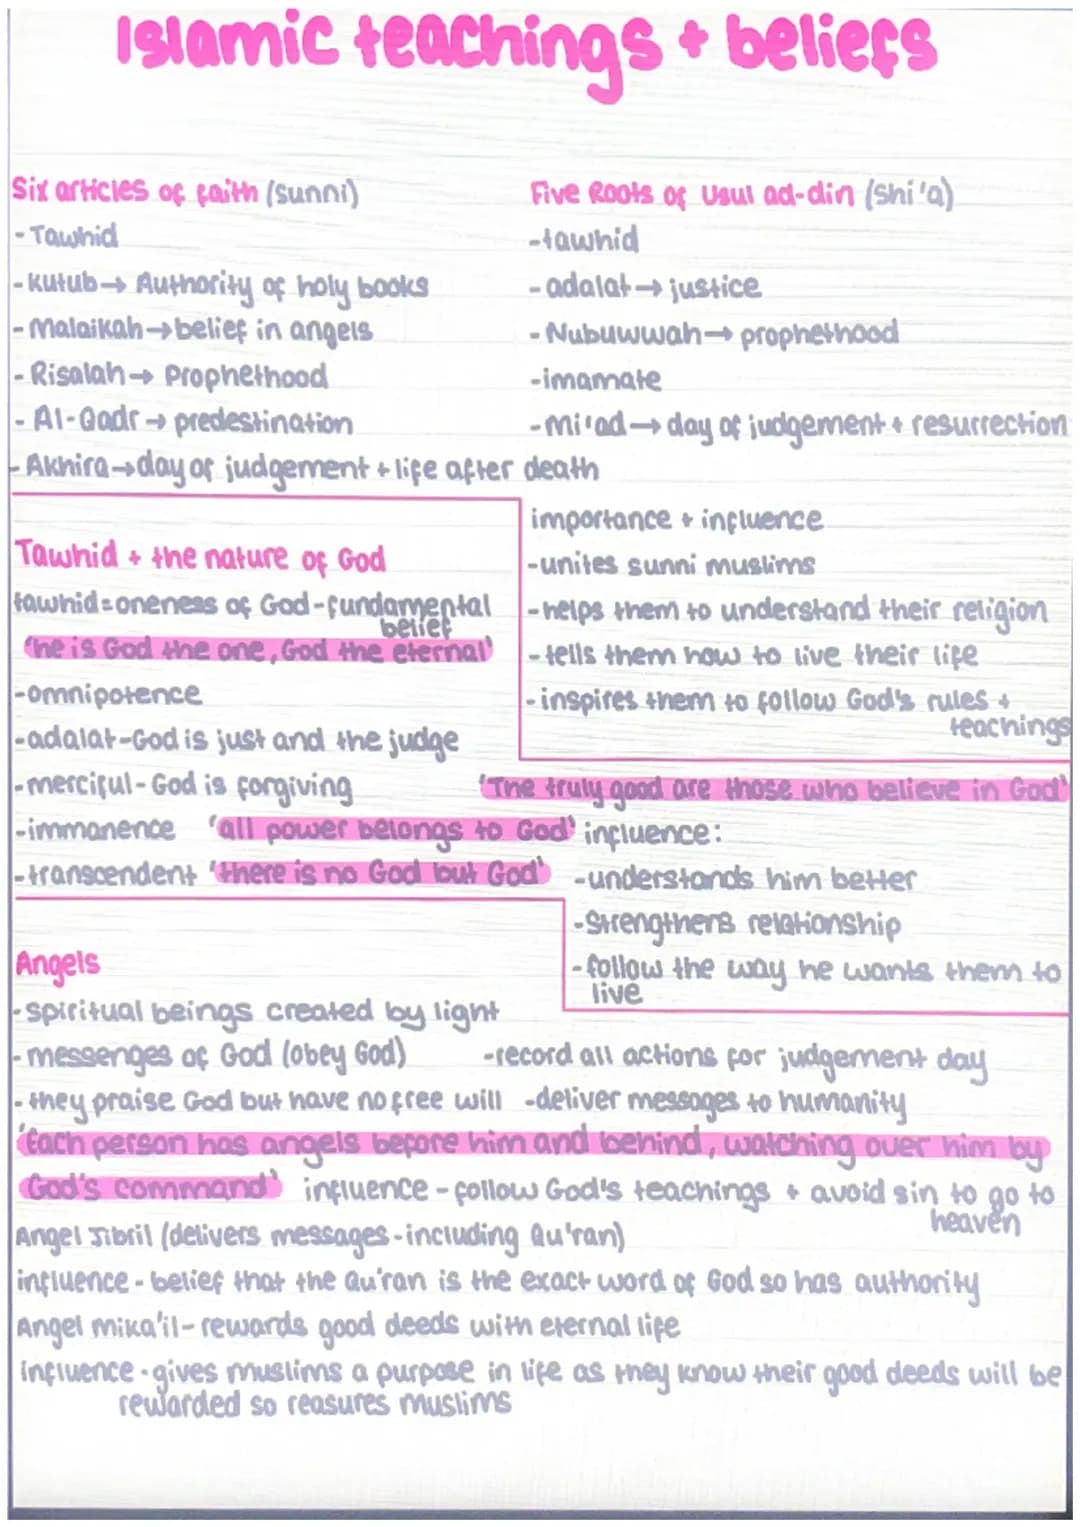 Islamic teachings + beliefs
Six articles of faith (sunni)
- Tawhid
- Kutub → Authority of holy books
- Malaikah → belief in angels
- Risalah → Prophethood
- Al-Qadr → predestination
- Akhira → day of judgement + life after death
Five Roots of Usul ad-din (Shi'a)
- tawhid
- adalat → justice
- Nubuwwah → prophethood
- imamate
- Mi'ad → day of judgement + resurrection
importance + influence
- unites sunni muslims
- helps them to understand their religion
- tells them how to live their life
- inspires them to follow God's rules +
teachings
Tawhid + the nature of God
tawhid = oneness of God - fundamental
belief
'he is God the one, God the eternal'
- omnipotence
- adalat - God is just and the judge
- merciful - God is forgiving
- immanence 'all power belongs to God'
- transcendent 'there is no God but God'
'The truly good are those who believe in God'
influence:
- understands him better
- Strengthens relationship
- follow the way he wants them to
live
Angels
- spiritual beings created by light
- messenges of God (obey God)
- record all actions for judgement day
- they praise God but have no free will
- deliver messages to humanity
'Each person has angels before him and behind, watching over him by
God's command' influence - follow God's teachings + avoid sin to go to
heaven
Angel Jibril (delivers messages - including Qu'ran)
influence - belief that the Qu'ran is the exact word of God so has authority
Angel mika'il - rewards good deeds with eternal life
influence - gives muslims a purpose in life as they know their good deeds will be
rewarded so reasures muslims